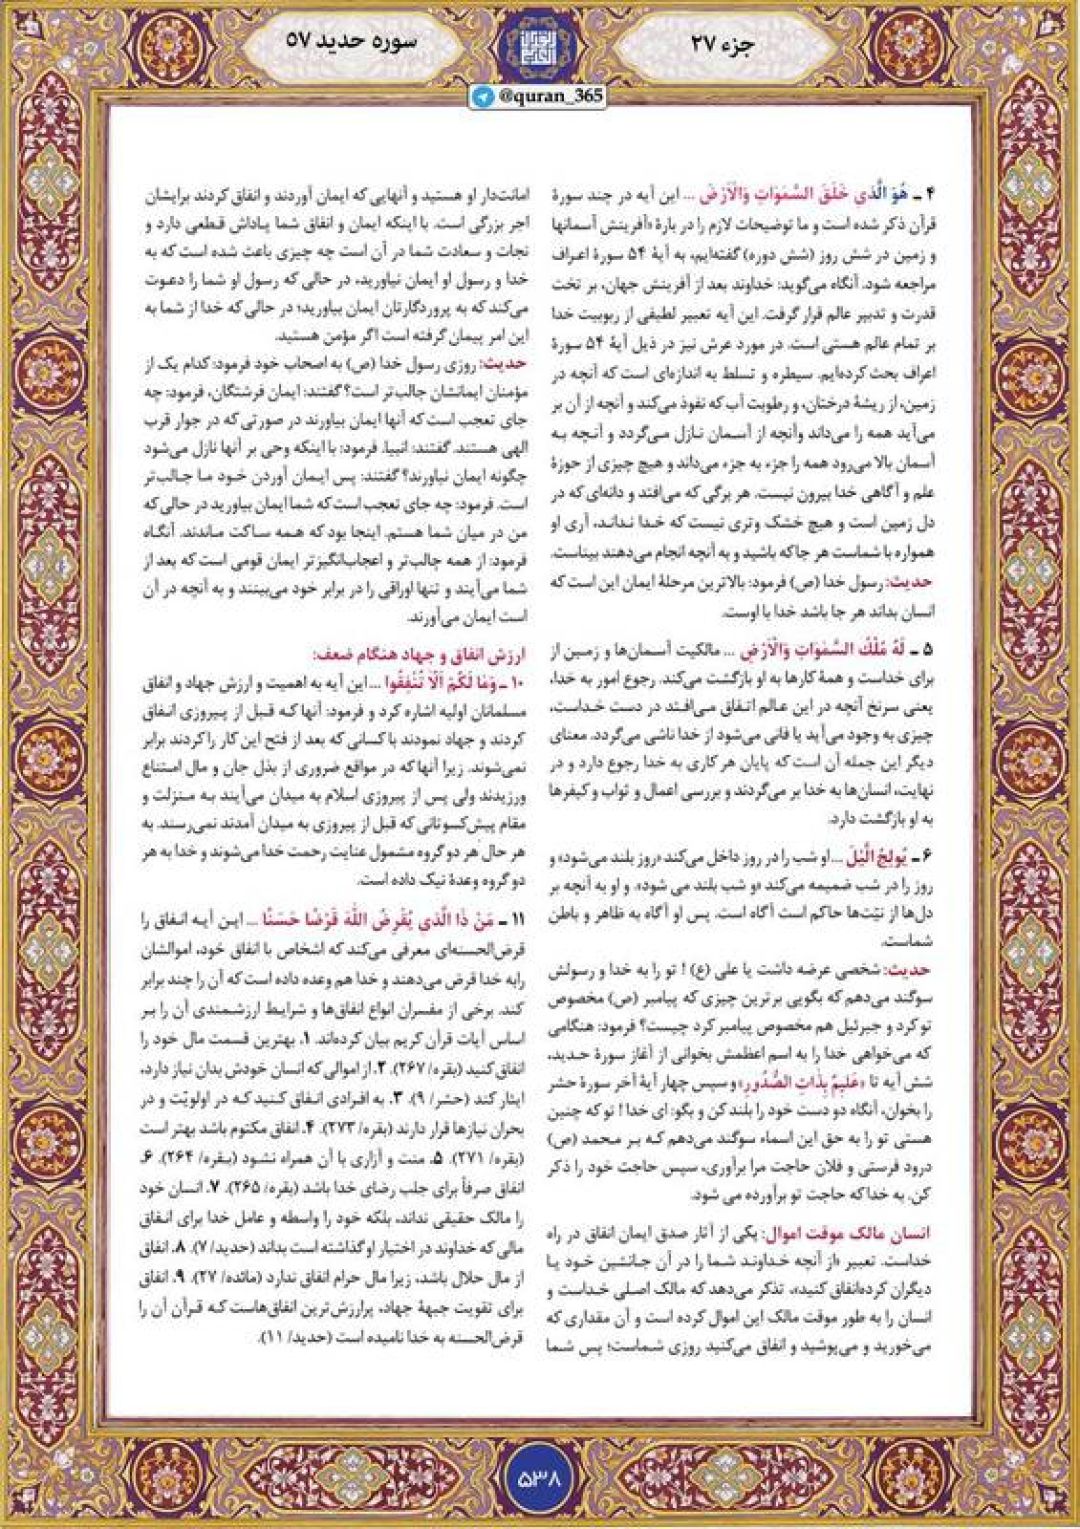 جزء ۲۷
سوره حدید ۵۷
@quran_365
۴ ـ هُوَ الَّذی خَلَقَ السَّمٰوَاتِ وَالْاَرْضَ ... این آیه در چند سورهٔ
قرآن ذکر شده است و ما توضیحات لازم را در بارهٔ «آفرینش آسمانها
و زمین در شش روز (شش دوره) گفته‌ایم، به آیهٔ ۵۴ سورهٔ اعراف
مراجعه شود. آنگاه می‌گوید: خداوند بعد از آفرینش جهان، بر تخت
قدرت و تدبیر عالم قرار گرفت. این آیه تعبیر لطیفی از ربوبیت خدا
بر تمام عالم هستی است. در مورد عرش نیز در ذیل آیهٔ ۵۴ سورهٔ
اعراف بحث کرده‌ایم. سیطره و تسلط به اندازه‌ای است که آنچه در
زمین، از ریشهٔ درختان، و رطوبت آب که نفوذ می‌کند و آنچه از آن بر
می‌آید همه را می‌داند وآنچه از آسمان نازل می‌گردد و آنچه به
آسمان بالا می‌رود همه را جزء به جزء می‌داند و هیچ چیزی از حوزهٔ
علم و آگاهی خدا بیرون نیست. هر برگی که می‌افتد و دانه‌ای که در
دل زمین است و هیچ خشک وتری نیست که خدا نداند، آری او
همواره با شماست هر جا که باشید و به آنچه انجام می‌دهند بیناست.
حدیث: رسول خدا (ص) فرمود: بالاترین مرحلهٔ ایمان این است که
انسان بداند هر جا باشد خدا با اوست.
۵ ـ لَهُ مُلْكُ السَّمٰوَاتِ وَالْاَرْضِ ... مالکیت آسمان‌ها و زمین از
برای خداست و همهٔ کارها به او بازگشت می‌کند. رجوع امور به خدا،
یعنی سرنخ آنچه در این عالم اتفاق می‌افتد در دست خداست،
چیزی به وجود می‌آید یا فانی می‌شود از خدا ناشی می‌گردد. معنای
دیگر این جمله آن است که پایان هر کاری به خدا رجوع دارد و در
نهایت، انسان‌ها به خدا بر می‌گردند و بررسی اعمال و ثواب و کیفرها
به او بازگشت دارد.
۶ ـ یُولِجُ الَّیْلَ ...او شب را در روز داخل می‌کند «روز بلند می‌شود» و
روز را در شب ضمیمه می‌کند «و شب بلند می شود». و او به آنچه بر
دل‌ها از نیّت‌ها حاکم است آگاه است. پس او آگاه به ظاهر و باطن
شماست.
حدیث: شخصی عرضه داشت یا علی (ع) ! تو را به خدا و رسولش
سوگند می‌دهم که بگویی برترین چیزی که پیامبر (ص) مخصوص
تو کرد و جبرئیل هم مخصوص پیامبر کرد چیست؟ فرمود: هنگامی
که می‌خواهی خدا را به اسم اعظمش بخوانی از آغاز سورهٔ حدید،
شش آیه تا «عَلِیمٌ بِذَاتِ الصُّدُورِ» و سپس چهار آیهٔ آخر سورهٔ حشر
را بخوان، آنگاه دو دست خود را بلند کن و بگو: ای خدا ! تو که چنین
هستی تو را به حق این اسماء سوگند می‌دهم که بر محمد (ص)
درود فرستی و فلان حاجت مرا برآوری، سپس حاجت خود را ذکر
کن. به خدا که حاجت تو برآورده می شود.
انسان مالک موقت اموال: یکی از آثار صدق ایمان انفاق در راه
خداست. تعبیر «از آنچه خداوند شما را در آن جانشین خود یا
دیگران کرده‌انفاق کنید»، تذکر می‌دهد که مالک اصلی خداست و
انسان را به طور موقت مالک این اموال کرده است و آن مقداری که
می‌خورید و می‌پوشید و انفاق می‌کنید روزی شماست؛ پس شما
امانت‌دار او هستید و آنهایی که ایمان آوردند و انفاق کردند برایشان
اجر بزرگی است. با اینکه ایمان و انفاق شما پاداش قطعی دارد و
نجات و سعادت شما در آن است چه چیزی باعث شده است که به
خدا و رسول او ایمان نیاورید، در حالی که رسول او شما را دعوت
می‌کند که به پروردگارتان ایمان بیاورید؛ در حالی که خدا از شما به
این امر پیمان گرفته است اگر مؤمن هستید.
حدیث: روزی رسول خدا (ص) به اصحاب خود فرمود: کدام یک از
مؤمنان ایمانشان جالب‌تر است؟ گفتند: ایمان فرشتگان، فرمود: چه
جای تعجب است که آنها ایمان بیاورند در صورتی که در جوار قرب
الهی هستند. گفتند: انبیا. فرمود: با اینکه وحی بر آنها نازل می‌شود
چگونه ایمان نیاورند؟ گفتند: پس ایمان آوردن خود ما جالب‌تر
است. فرمود: چه جای تعجب است که شما ایمان بیاورید در حالی که
من در میان شما هستم. اینجا بود که همه ساکت ماندند. آنگاه
فرمود: از همه جالب‌تر و اعجاب‌انگیزتر ایمان قومی است که بعد از
شما می‌آیند و تنها اوراقی را در برابر خود می‌بینند و به آنچه در آن
است ایمان می‌آورند.
ارزش انفاق و جهاد هنگام ضعف:
۱۰ ـ وَمَا لَكُمْ اَلَّا تُنْفِقُوا ... این آیه به اهمیت و ارزش جهاد و انفاق
مسلمانان اولیه اشاره کرد و فرمود: آنها که قبل از پیروزی انفاق
کردند و جهاد نمودند با کسانی که بعد از فتح این کار را کردند برابر
نمی‌شوند. زیرا آنها که در مواقع ضروری از بذل جان و مال امتناع
ورزیدند ولی پس از پیروزی اسلام به میدان می‌آیند به منزلت و
مقام پیش‌کسوتانی که قبل از پیروزی به میدان آمدند نمی‌رسند. به
هر حال هر دو گروه مشمول عنایت رحمت خدا می‌شوند و خدا به هر
دو گروه وعدهٔ نیک داده است.
۱۱ ـ مَنْ ذَا الَّذی یُقْرِضُ اللهَ قَرْضًا حَسَنًا ... این آیه انفاق را
قرض‌الحسنه‌ای معرفی می‌کند که اشخاص با انفاق خود، اموالشان
رابه خدا قرض می‌دهند و خدا هم وعده داده است که آن را چند برابر
کند. برخی از مفسران انواع انفاق‌ها و شرایط ارزشمندی آن را بر
اساس آیات قرآن کریم بیان کرده‌اند. ۱. بهترین قسمت مال خود را
انفاق کنید (بقره/ ۲۶۷). ۲. از اموالی که انسان خودش بدان نیاز دارد،
ایثار کند (حشر/ ۹). ۳. به افرادی انفاق کنید که در اولویّت و در
بحران نیازها قرار دارند (بقره/ ۲۷۳). ۴. انفاق مکتوم باشد بهتر است
(بقره/ ۲۷۱). ۵. منت و آزاری با آن همراه نشود (بقره/ ۲۶۴). ۶.
انفاق صرفاً برای جلب رضای خدا باشد (بقره/ ۲۶۵). ۷. انسان خود
را مالک حقیقی نداند، بلکه خود را واسطه و عامل خدا برای انفاق
مالی که خداوند در اختیار او گذاشته است بداند (حدید/ ۷). ۸. انفاق
از مال حلال باشد، زیرا مال حرام انفاق ندارد (مائده/ ۲۷). ۹. انفاق
برای تقویت جبههٔ جهاد، پرارزش‌ترین انفاق‌هاست که قرآن آن را
قرض‌الحسنه به خدا نامیده است (حدید/ ۱۱).
۵۳۸